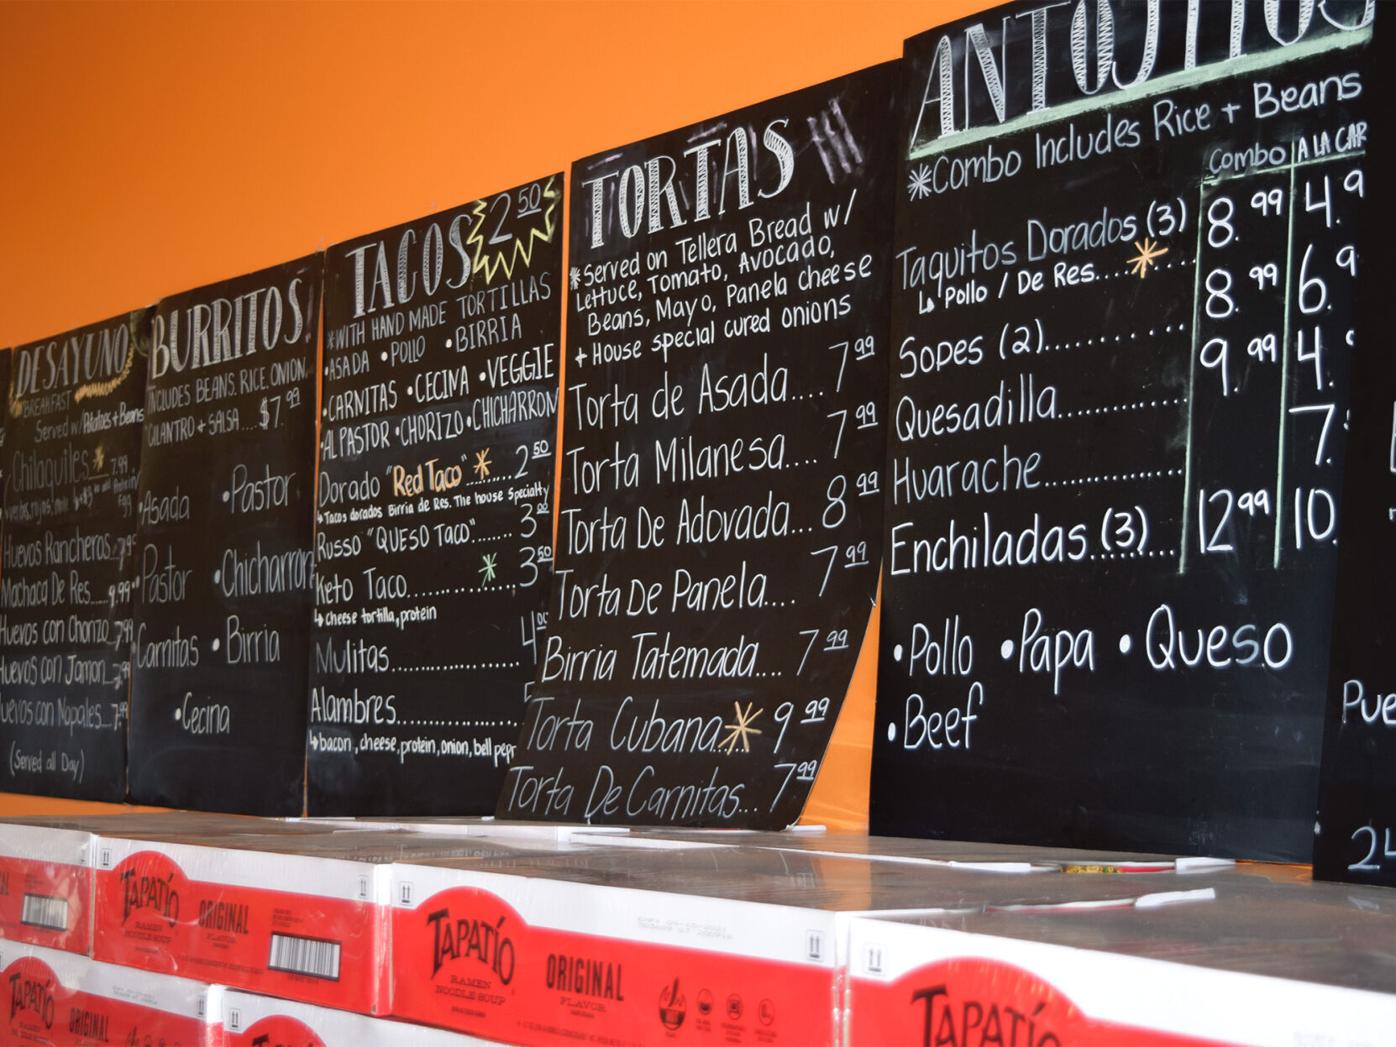 DESAYUNO
BREAKFAST
Served w/ Potatoes + Beans
Chilaquiles * 7.99
Huevos Rancheros...7.99
Machaca De Res....9.99
Huevos con Chorizo..7.99
Huevos con Jamon...7.99
uevos con Nopales...7.99
(Served all Day)
BURRITOS
INCLUDES BEANS, RICE, ONION,
CILANTRO + SALSA.... $7.99
Asada •Pastor
•Pastor •Chicharron
Carnitas •Birria
•Cecina
TACOS 2.50
*WITH HAND MADE TORTILLAS
•ASADA •POLLO •BIRRIA
•CARNITAS •CECINA •VEGGIE
•AL PASTOR •CHORIZO •CHICHARRON
Dorado "Red Taco" *......2.50
↳Tacos dorados Birria de Res. The house Specialty
Russo "QUESO TACO"........ 3.00
Keto Taco..........*.....3.50
↳cheese tortilla, protein
Mulitas.................. 4.00
Alambres.................
↳bacon, cheese, protein, onion, bell pepr
TORTAS
*Served on Tellera Bread w/
Lettuce, Tomato, Avocado,
Beans, Mayo, Panela cheese
+ House special cured onions
Torta de Asada... 7.99
Torta Milanesa.... 7.99
Torta De Adovada... 8.99
Torta De Panela.... 7.99
Birria Tatemada.... 7.99
Torta Cubana...* 9.99
Torta De Carnitas... 7.99
ANTOJITOS
*Combo Includes Rice + Beans
Combo A LA CAR
Taquitos Dorados (3) 8.99 4.9
↳ Pollo / De Res....*....
Sopes (2)............ 8.99 6.9
Quesadilla............. 9.99 4.
Huarache............... 7.
Enchiladas (3)..... 12.99 10.
•Pollo •Papa •Queso
•Beef
Pue
24
TAPATÍO
RAMEN
NOODLE SOUP
ORIGINAL
FLAVOR
TAPATÍO
RAMEN
NOODLE SOUP
ORIGINAL
FLAVOR
TAPATÍO
TAPATÍO
TAPATÍO